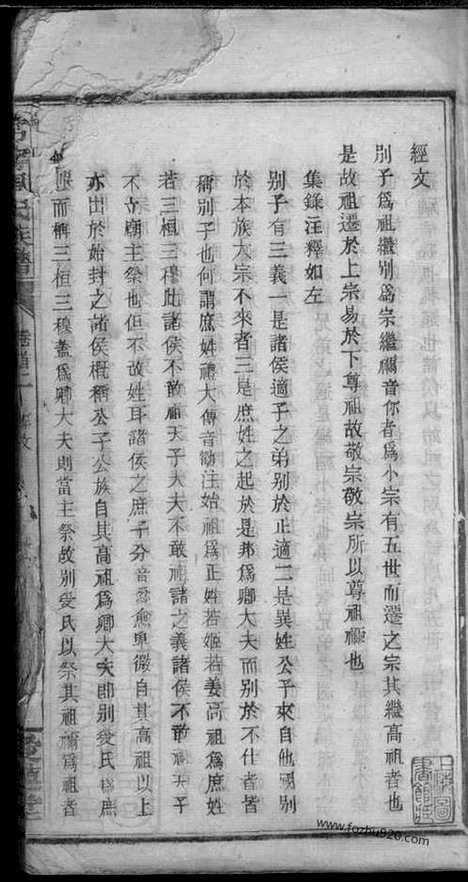 經文
別子爲祖繼別爲宗繼禰音你者爲小宗有五世而遷之宗其繼高祖者也
是故祖遷於上宗易於下尊祖故敬宗敬宗所以尊祖禰也
集錄注釋如左
別子有三義一是諸侯適子之弟別於正適二是異姓公子來自他國別
於本族大宗不來者三是庶姓之起於是邦爲卿大夫而別於不仕者皆
稱別子也何謂庶姓禮大傳音注始祖爲正姓若姬若姜高祖爲庶姓
若三桓三穆此諸侯不敢祖天子大夫不敢祖諸之義諸侯不敢祖天子
不立朝主祭也但不故姓耳諸侯之庶子分音忿愈卑微自其高祖以上
亦出於始封之諸侯槪稱公子公族自其高祖爲卿大夫即別受氏爲庶
而稱三桓三穆蓋爲卿大夫則當主祭故別受氏以祭其祖禰爲祖者
族譜
卷首一
www.fozhu920.com